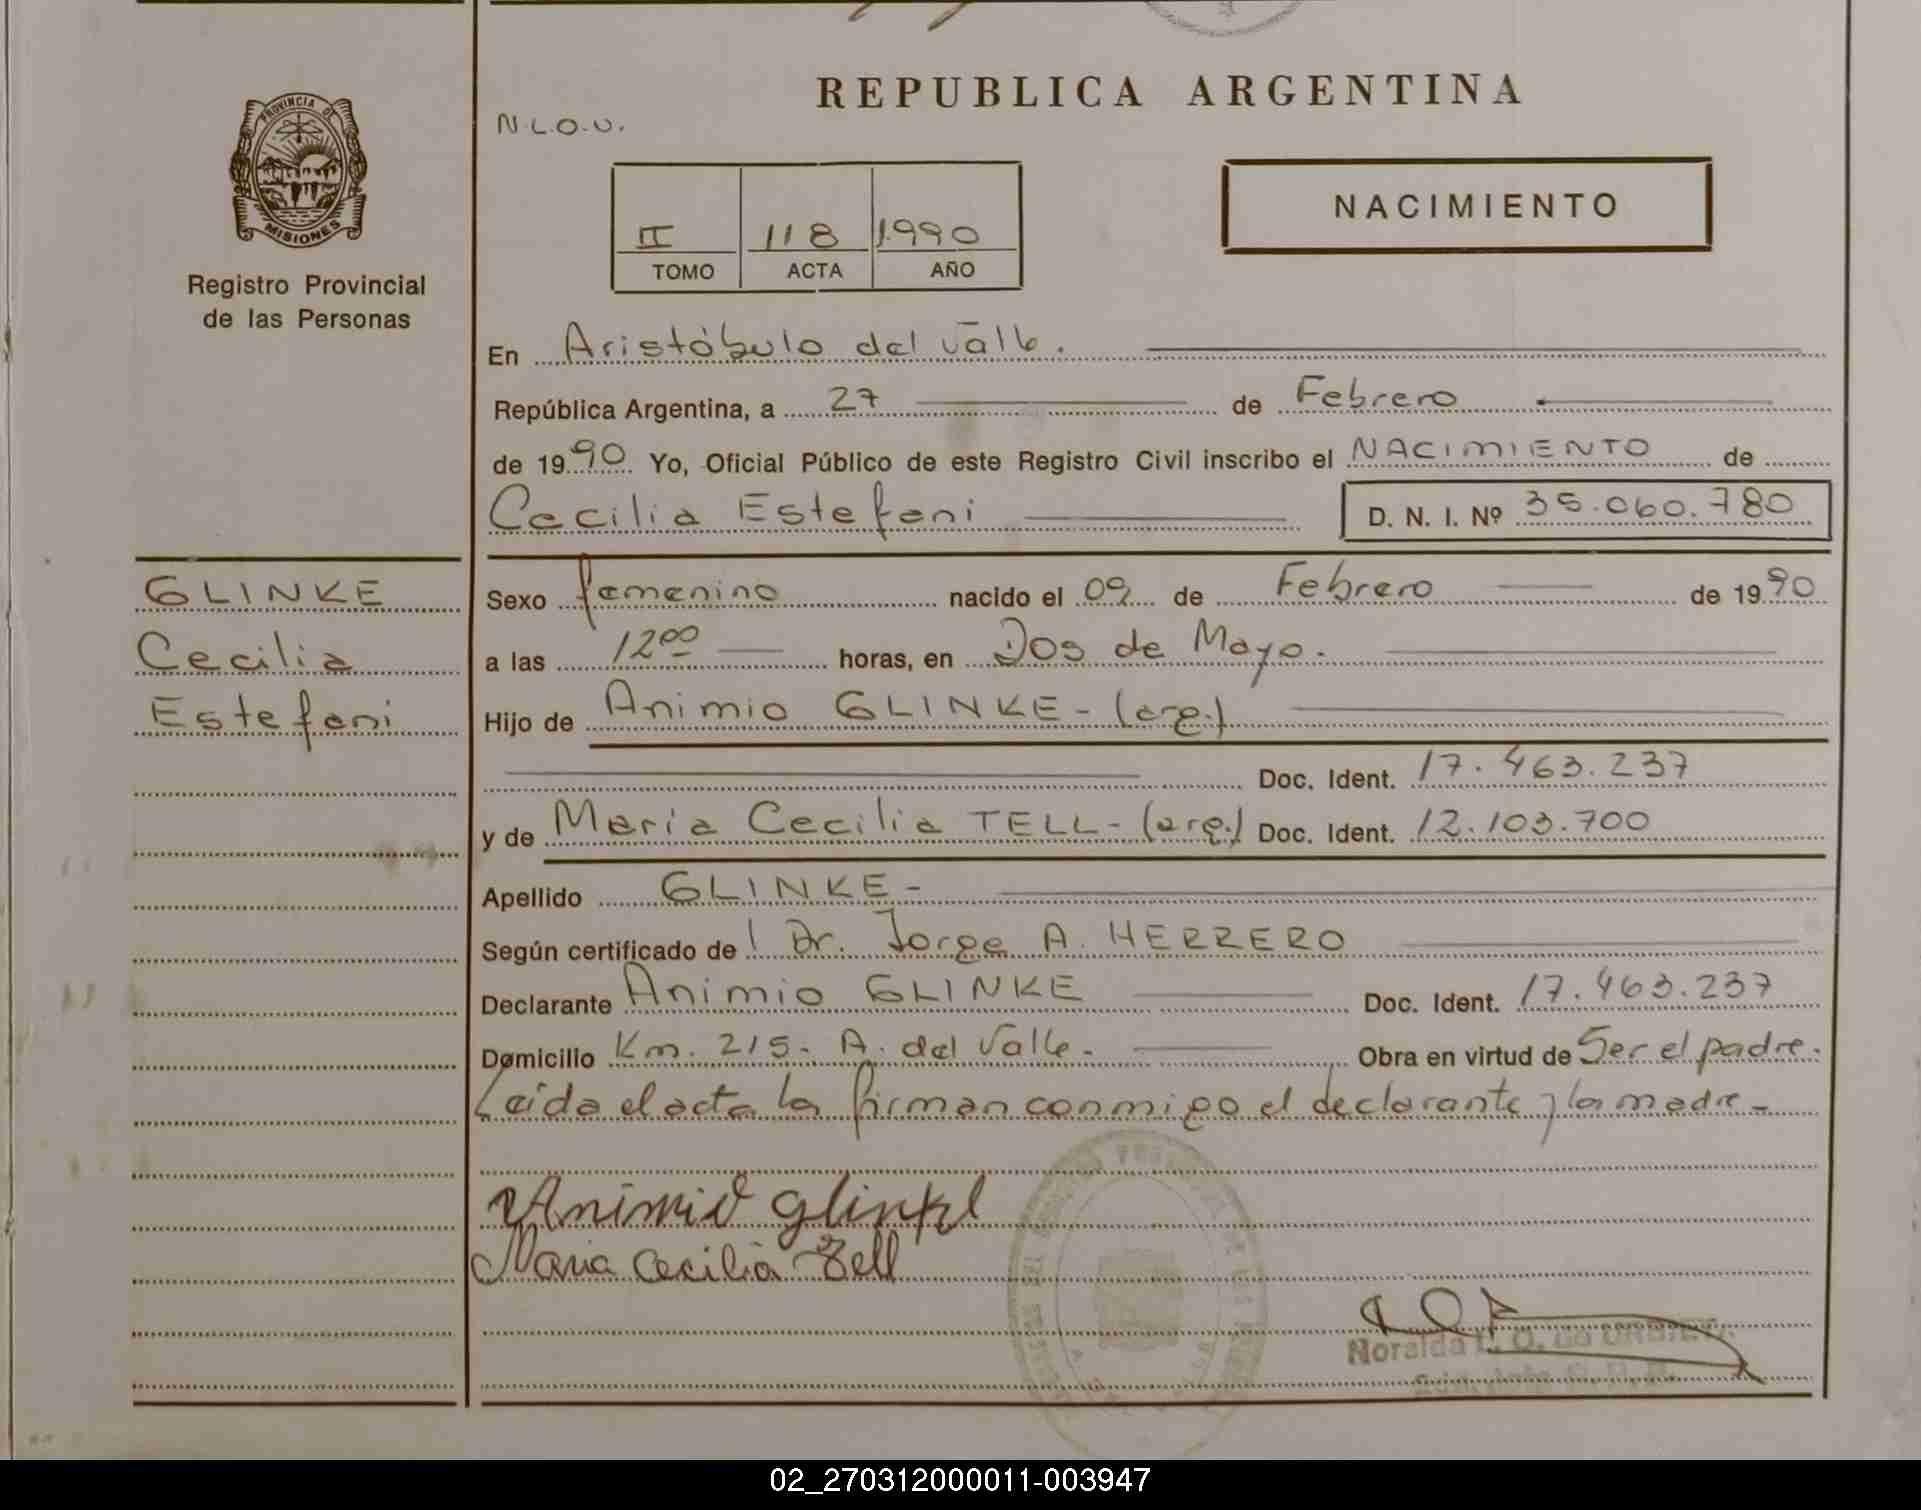 REPUBLICA ARGENTINA
PROVINCIA DE
MISIONES
Registro Provincial
de las Personas
N.L.O.U.
II 118 1990
TOMO ACTA AÑO
NACIMIENTO
En Aristóbulo del Valle.
República Argentina, a 27 de Febrero
de 1990 Yo, Oficial Público de este Registro Civil inscribo el NACIMIENTO de
Cecilia Estefani D. N. I. Nº 35.060.780
GLINKE
Cecilia
Estefani
Sexo femenino nacido el 09 de Febrero de 1990
a las 12 00 horas, en Dos de Mayo.
Hijo de Animio GLINKE - (arg.)
Doc. Ident. 17.463.237
y de María Cecilia TELL - (arg.) Doc. Ident. 12.103.700
Apellido GLINKE -
Según certificado de Dr. Jorge A. HERRERO
Declarante Animio GLINKE Doc. Ident. 17.463.237
Domicilio Km. 215 - A. del Valle - Obra en virtud de Ser el padre.
Leída el acta la firman conmigo el declarante y la madre -
Animio Glinke
Maria Cecilia Tell
Noralda
02_270312000011-003947